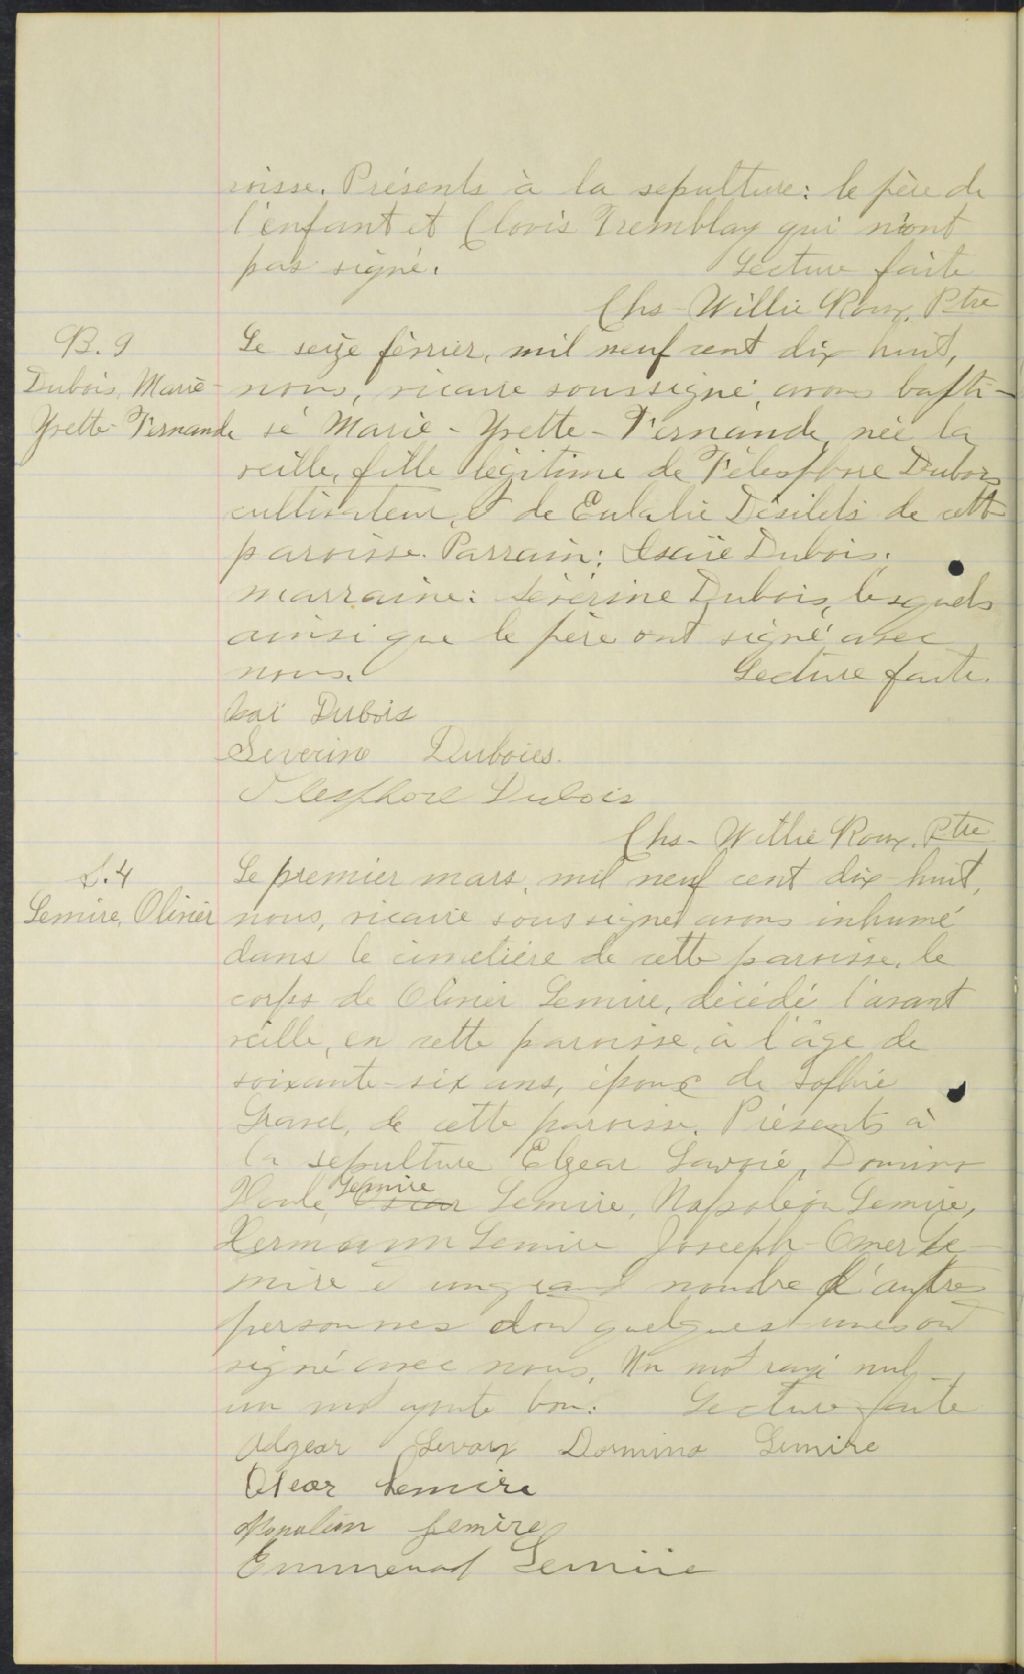 roisse. Présents à la sépulture: le père de
l'enfant et Clovis Tremblay qui n'ont
pas signé. Lecture faite
Chs-Willie Roux, Ptre
B. 9
Dubois, Marie-
Yvette-Fernande
Le seize février, mil neuf cent dix huit,
nous, vicaire soussigné, avons bapti-
sé Marie-Yvette-Fernande, née la
veille, fille légitime de Télesphore Dubois
cultivateur, et de Eulalie Désilets de cette
paroisse. Parrain: Isaïe Dubois.
marraine: Sévérine Dubois, lesquels
ainsi que le père ont signé avec
nous. Lecture faite.
Isaï Dubois
Severine Duboies.
Telesphore Dubois
Chs-Willie Roux, Ptre
S. 4
Lemire, Olivier
Le premier mars, mil neuf cent dix-huit,
nous, vicaire soussigné avons inhumé
dans le cimetière de cette paroisse, le
corps de Olivier Lemire, décédé l'avant
veille, en cette paroisse, à l'âge de
soixante-six ans, époux de Sophie
Gravel, de cette paroisse. Présents à
la sépulture Elzear Savoie, Domino
Lemire
Oscar Lemire, Napoléon Lemire,
Hermann Lemire Joseph-Omer Le-
mire et un grand nombre d'autres
personnes dont quelques unes ont
signé avec nous. Un mot rayé nul
un mot ajouté bon. Lecture faite
Domino Lemire
Oscar Lemire
Napoleon Lemire
Lemire